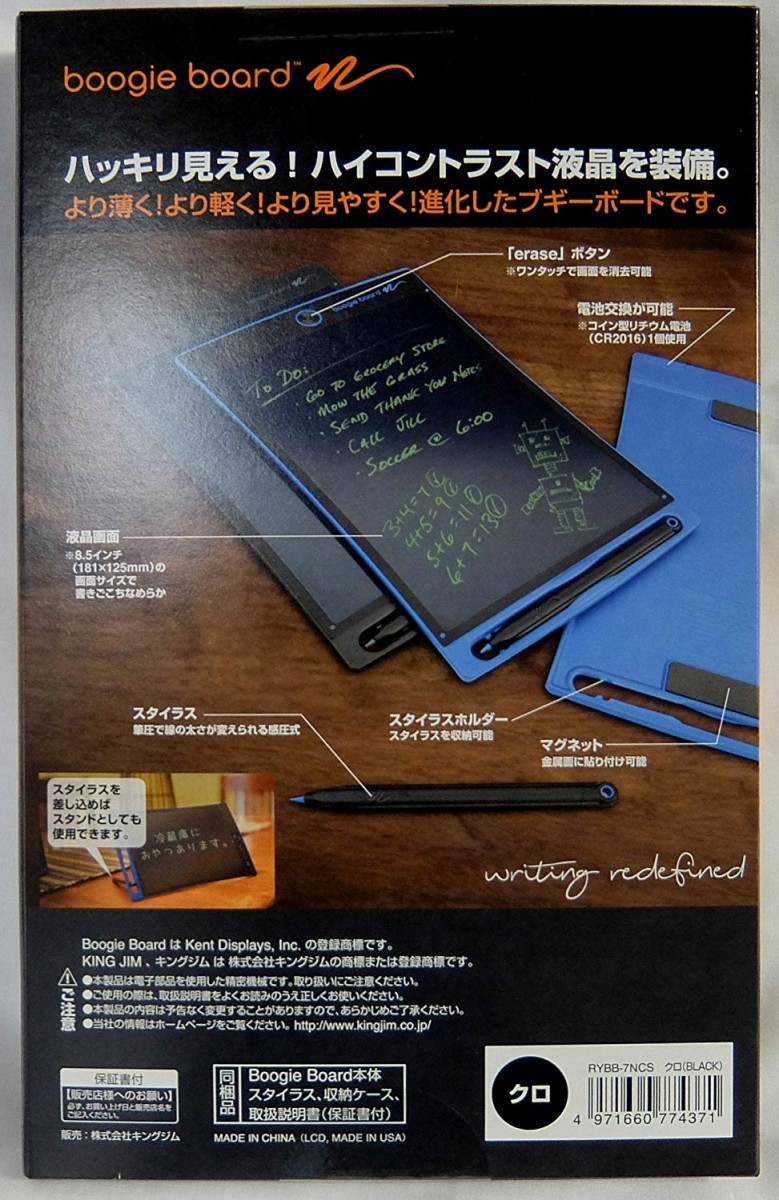 boogie board™
ハッキリ見える！ハイコントラスト液晶を装備。
より薄く！より軽く！より見やすく！進化したブギーボードです。
「erase」ボタン
※ワンタッチで画面を消去可能
電池交換が可能
※コイン型リチウム電池
（CR2016）1個使用
boogie board
To Do:
· GO TO GROCERY STORE
· MOW THE GRASS
· SEND THANK YOU NOTES
· CALL JILL
· SOCCER @ 6:00
3+4=7
4+5=9
5+6=11
6+7=13
液晶画面
※8.5インチ
（181×125mm）の
画面サイズで
書きごこちなめらか
スタイラス
筆圧で線の太さが変えられる感圧式
スタイラスホルダー
スタイラスを収納可能
マグネット
金属面に貼り付け可能
スタイラスを
差し込めば
スタンドとしても
使用できます。
冷蔵庫に
おやつあります。
writing redefined
Boogie Board は Kent Displays, Inc. の登録商標です。
KING JIM 、キングジム は 株式会社キングジムの商標または登録商標です。
ご注意
●本製品は電子部品を使用した精密機械です。取り扱いにご注意ください。
●ご使用の際は、取扱説明書をよくお読みのうえ正しくお使いください。
●本製品の内容は予告なく変更することがありますので、あらかじめご了承ください。
●当社の情報はホームページをご覧ください。http://www.kingjim.co.jp/
保証書付
【販売店様へのお願い】
必ず、お買い上げ日と販売店名を
ご記入ください。
販売：株式会社キングジム
同梱品
Boogie Board本体
スタイラス、収納ケース、
取扱説明書（保証書付）
MADE IN CHINA (LCD, MADE IN USA)
クロ
RYBB-7NCS クロ(BLACK)
4 971660 774371